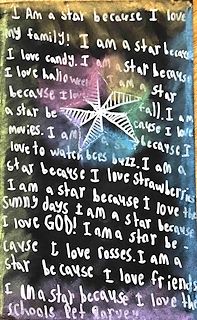 I Am a star because I love
my family! I am a star because
I love candy. I am a star because
I love halloween I am a star
because I love fall. I am
a star be cause I love
movies. I am because I
love to watch bees buzz. I am a
star because I love strawberries
I am a star because I love the
sunny days I am a star because
I love GOD! I am a star be -
cause I love rosses. I am a
star be cause I love friends
I am a star because I love the
schools Pet